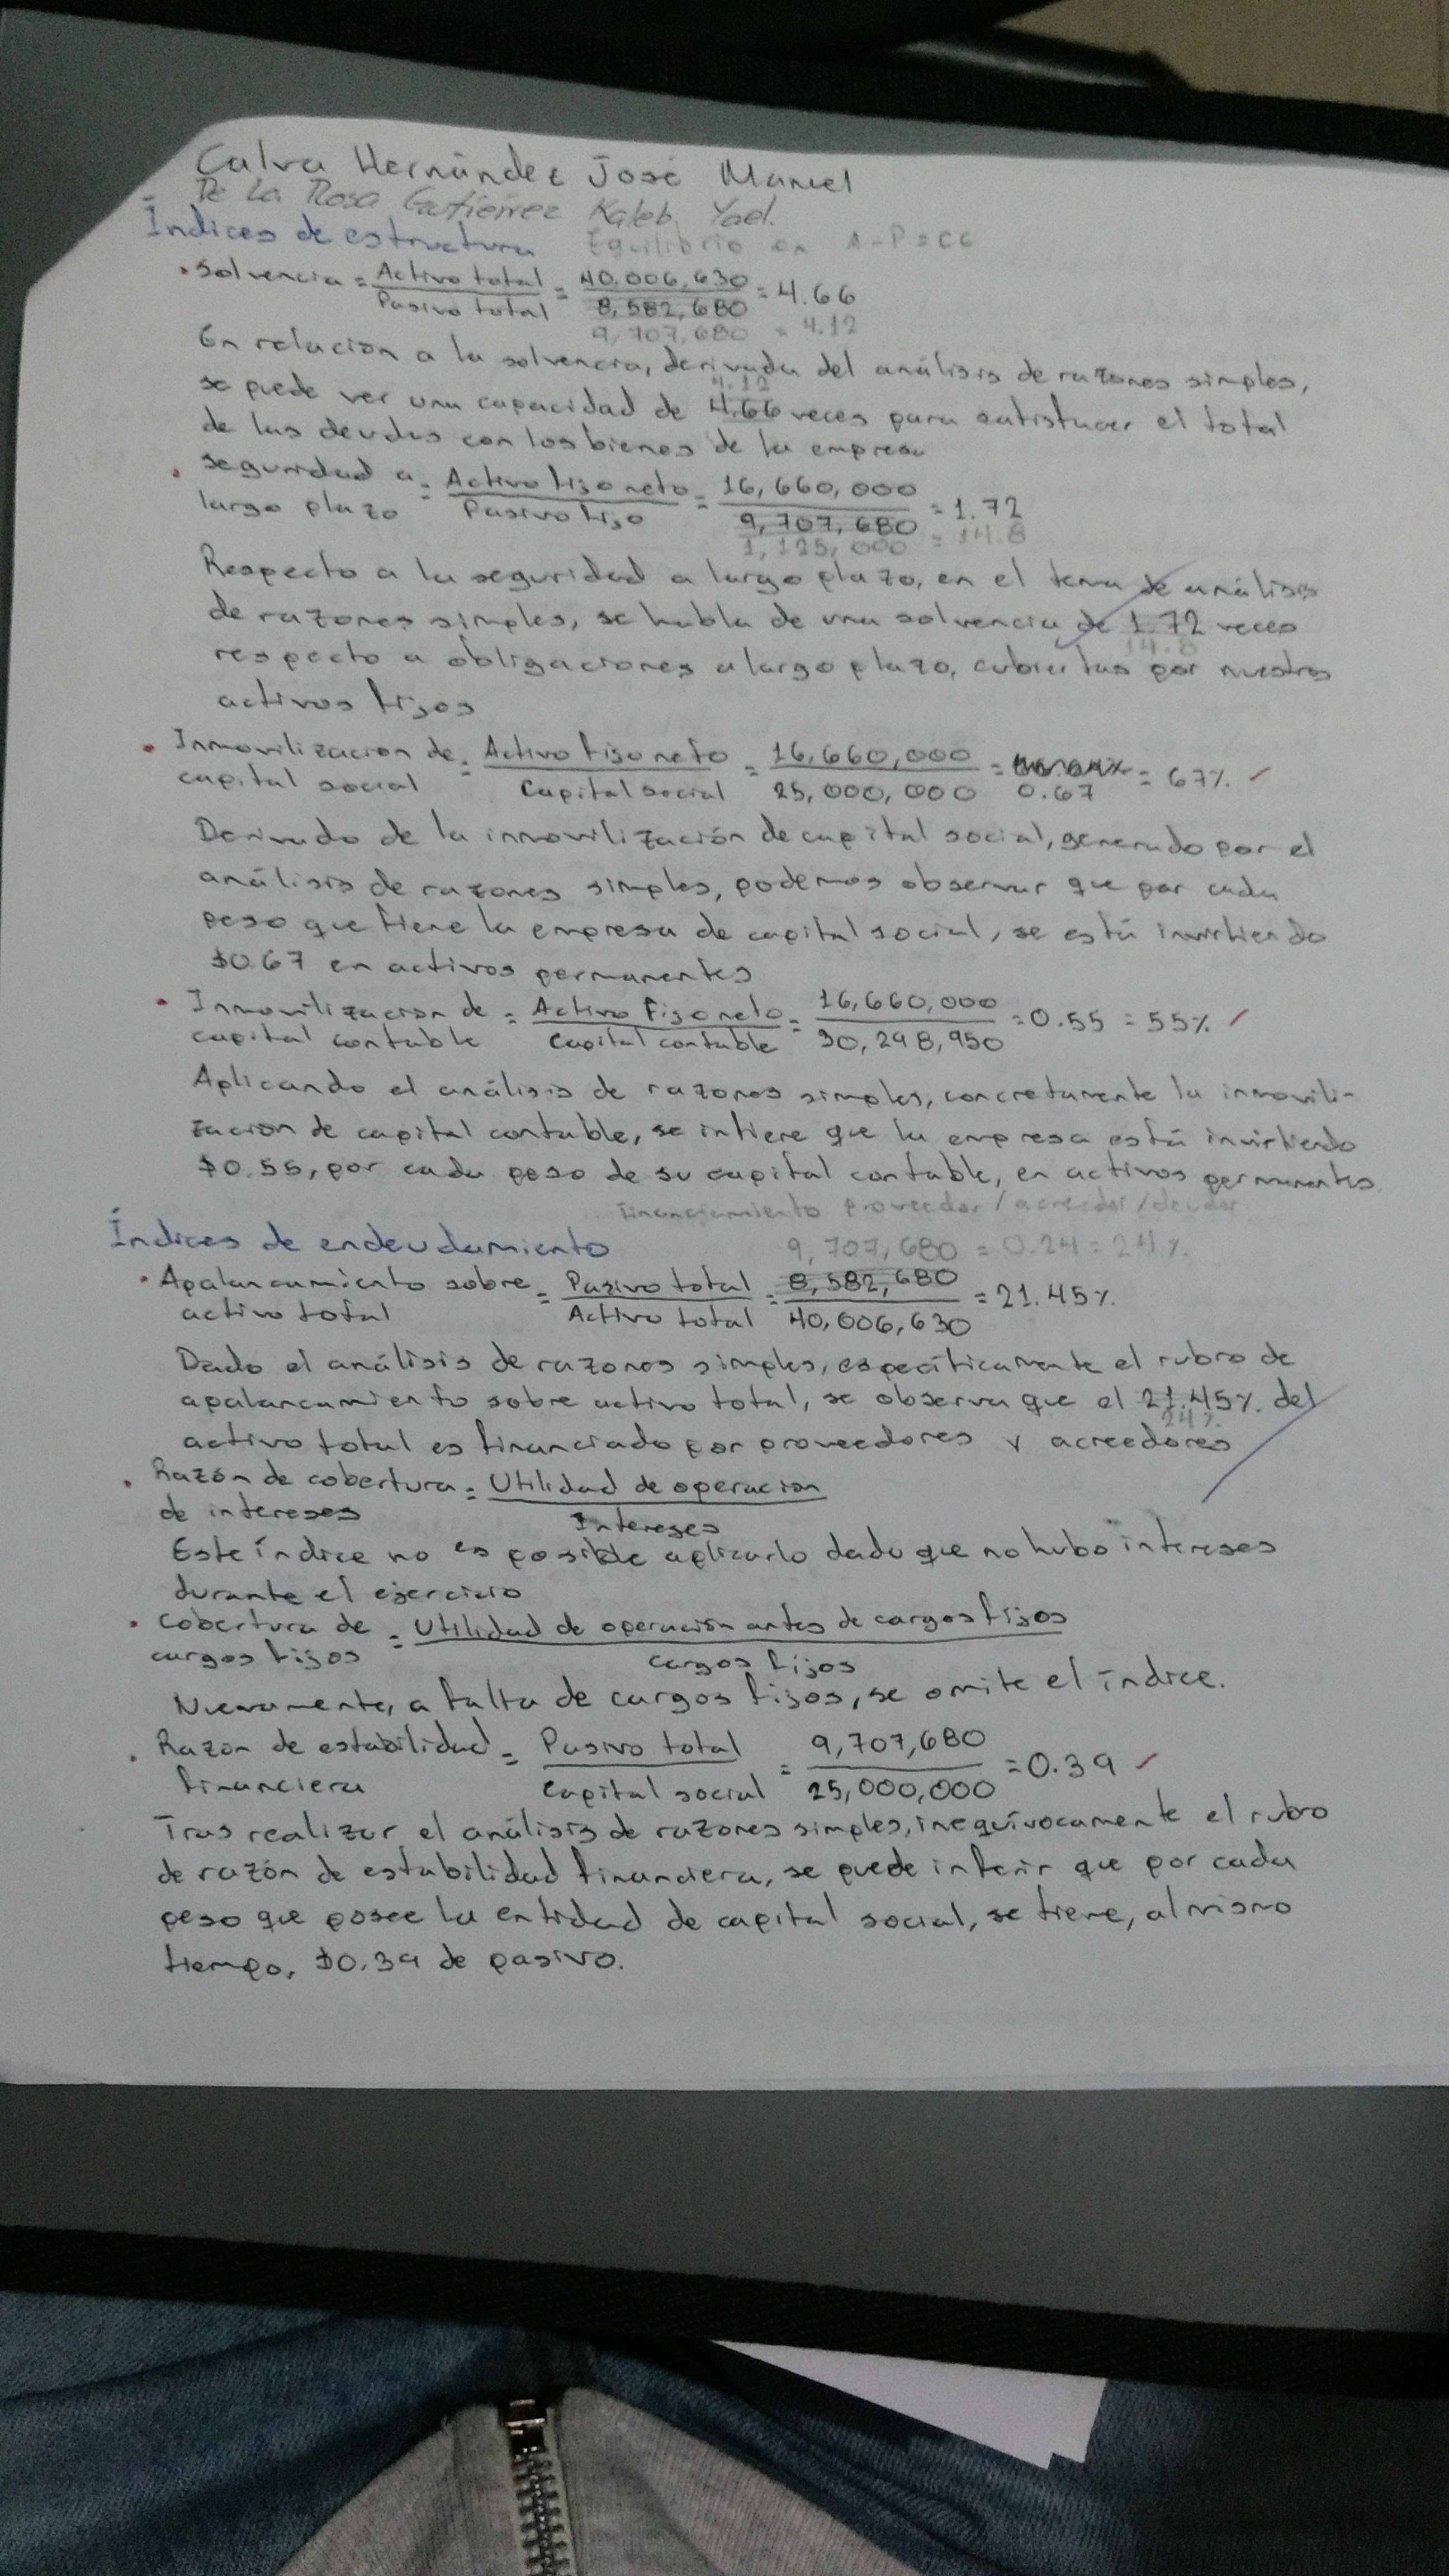 Calva Hernández José Manuel
De La Rosa Gutiérrez Kaleb Yael.
Índices de estructura Equilibrio en A-P=CC
• Solvencia = Activo total / Pasivo total = 40,006,630 / 8,582,680 = 4.66
9,707,680 = 4.12
En relación a la solvencia, derivada del análisis de razones simples,
4.12
se puede ver una capacidad de 4.66 veces para satisfacer el total
de las deudas con los bienes de la empresa
• Seguridad a largo plazo = Activo fijo neto / Pasivo fijo = 16,660,000 / 9,707,680 = 1.72
1,125,000 = 14.8
Respecto a la seguridad a largo plazo, en el tema de análisis
de razones simples, se habla de una solvencia de 1.72 veces
14.8
respecto a obligaciones a largo plazo, cubiertas por nuestros
activos fijos
• Inmovilización de capital social = Activo fijo neto / Capital social = 16,660,000 / 25,000,000 = 0.67 = 67%.
Derivado de la inmovilización de capital social, generado por el
análisis de razones simples, podemos observar que por cada
peso que tiene la empresa de capital social, se está invirtiendo
$0.67 en activos permanentes
• Inmovilización de capital contable = Activo Fijo neto / Capital contable = 16,660,000 / 30,298,950 = 0.55 = 55%
Aplicando el análisis de razones simples, concretamente la inmovili-
zación de capital contable, se infiere que la empresa está invirtiendo
$0.55, por cada peso de su capital contable, en activos permanentes.
Financiamiento proveedor/acreedor/deudor
Índices de endeudamiento 9,707,680 = 0.24 = 24%.
• Apalancamiento sobre activo total = Pasivo total / Activo total = 8,582,680 / 40,006,630 = 21.45%.
Dado el análisis de razones simples, específicamente el rubro de
apalancamiento sobre activo total, se observa que el 21.45%. del
24%.
activo total es financiado por proveedores y acreedores
• Razón de cobertura de intereses = Utilidad de operación / Intereses
Este índice no es posible aplicarlo dado que no hubo intereses
durante el ejercicio
• Cobertura de cargos fijos = Utilidad de operación antes de cargos fijos / cargos fijos
Nuevamente, a falta de cargos fijos, se omite el índice.
• Razón de estabilidad financiera = Pasivo total / Capital social = 9,707,680 / 25,000,000 = 0.39
Tras realizar el análisis de razones simples, inequívocamente el rubro
de razón de estabilidad financiera, se puede inferir que por cada
peso que posee la entidad de capital social, se tiene, al mismo
tiempo, $0.39 de pasivo.